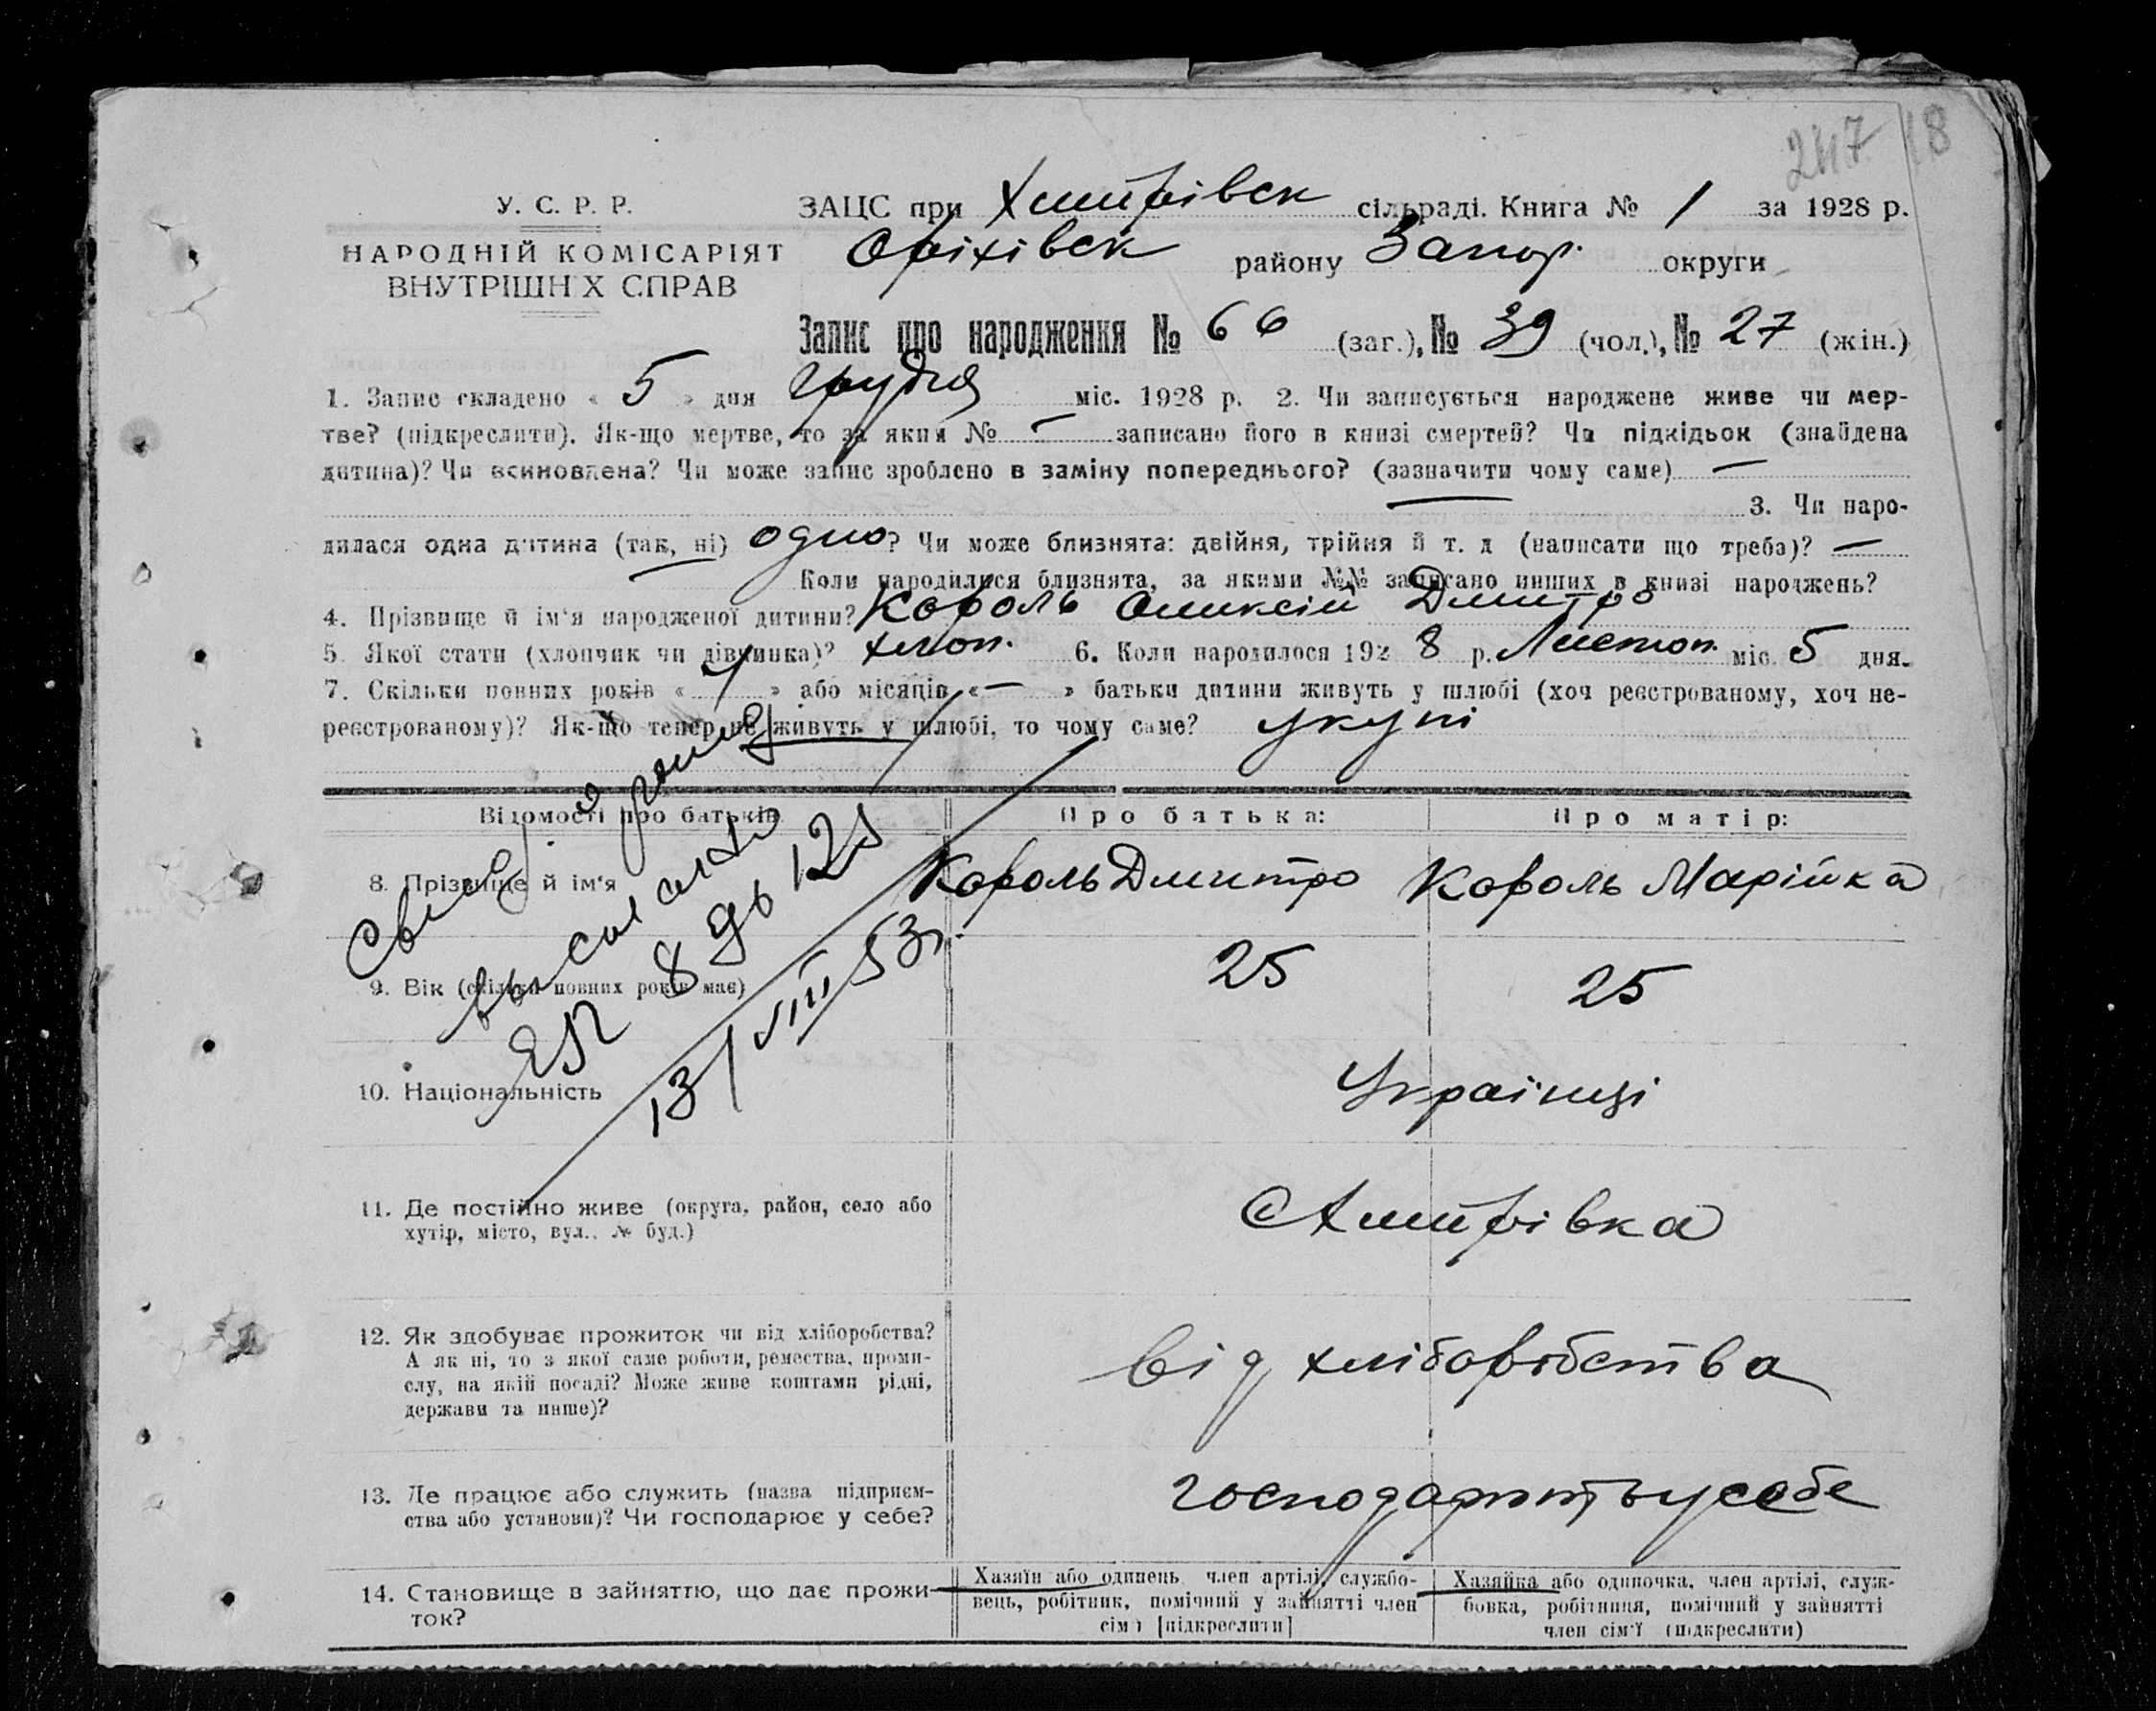 247 18
У. С. Р. Р.
НАРОДНІЙ КОМІСАРІЯТ
ВНУТРІШН Х СПРАВ
ЗАЦС при Хитрівск сільраді. Книга № 1 за 1928 р.
Оріхівск району Запор. округи
Запис про народження № 66 (заг.), № 39 (чол.), № 27 (жін.)
1. Запис складено « 5 » дня грудня міс. 1928 р. 2. Чи записується народжене живе чи мер-
тве? (підкреслити). Як-що мертве, то за яким № — записано його в книзі смертей? Чи підкідьок (знайдена
дитина)? Чи всиновлена? Чи може запис зроблено в заміну попереднього? (зазначити чому саме) —
— 3. Чи наро-
дилася одна дитина (так, ні) одно? Чи може близнята: двійня, трійня й т. д (написати що треба)? —
Коли народилися близнята, за якими №№ записано инших в книзі народжень?
4. Прізвище й ім'я народженої дитини? Король Оликсій Дмитро
5. Якої стати (хлопчик чи дівчинка)? хлоп. 6. Коли народилося 192 8 р. Листоп. міс. 5 дня.
7. Скільки повних років « 4 » або місяців « — » батьки дитини живуть у шлюбі (хоч реєстрованому, хоч не-
реєстрованому)? Як-що тепер не живуть у шлюбі, то чому саме? укупі
Відомості про батьків
Про батька:
Про матір:
8. Прізвище й ім'я
Король Дмитро
Король Марійка
9. Вік (скільки повних років має)
25
25
10. Національність
Українці
11. Де постійно живе (округа, район, село або
хутір, місто, вул., № буд.)
с Хитрівка
12. Як здобуває прожиток чи від хліборобства?
А як ні, то з якої саме роботи, ремества, проми-
слу, на якій посаді? Може живе коштами рідні,
держави та инше)?
від хліборобства
13. Де працює або служить (назва підприєм-
ства або установи)? Чи господарює у себе?
господарють у себе
14. Становище в зайняттю, що дає прожи-
ток?
Хазяїн або одинець, член артілі, службо-
вець, робітник, помічний у зайнятті член
сім'ї [підкреслити]
Хазяйка або одиночка, член артілі, служ-
бовка, робітниця, помічний у зайнятті
член сім'ї (підкреслити)
13/VIII 53 г.